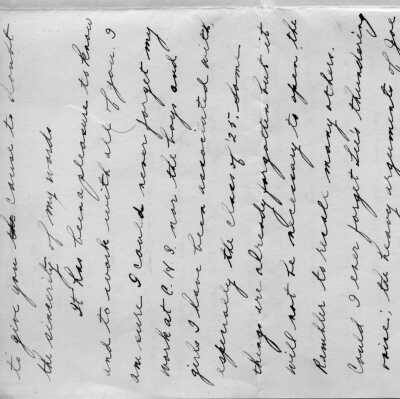 to give you cause to doubt
the sincerity of my words
It has been a pleasure to know
and to work with all of you. I
am sure I could never forget my
work at C.H.S. nor the boys and
girls I have been associated with
especially the class of '25. Some
things are already forgotten but it
will not be necessary to open the
Rumbler to recall many others.
Could I ever forget Lee's thundering
voice; the heavy arguments of Joe